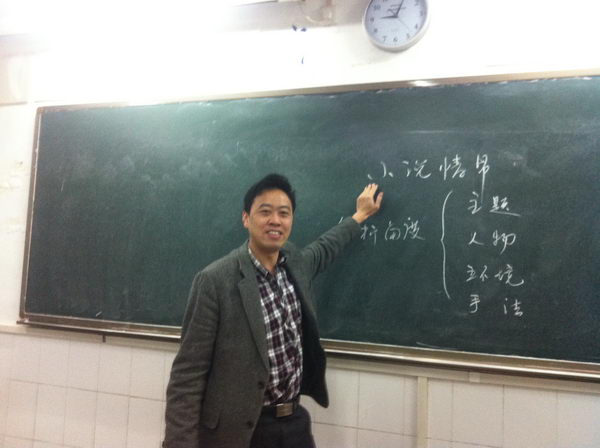 小说情节
主题
析阅读
人物
主环境
手法